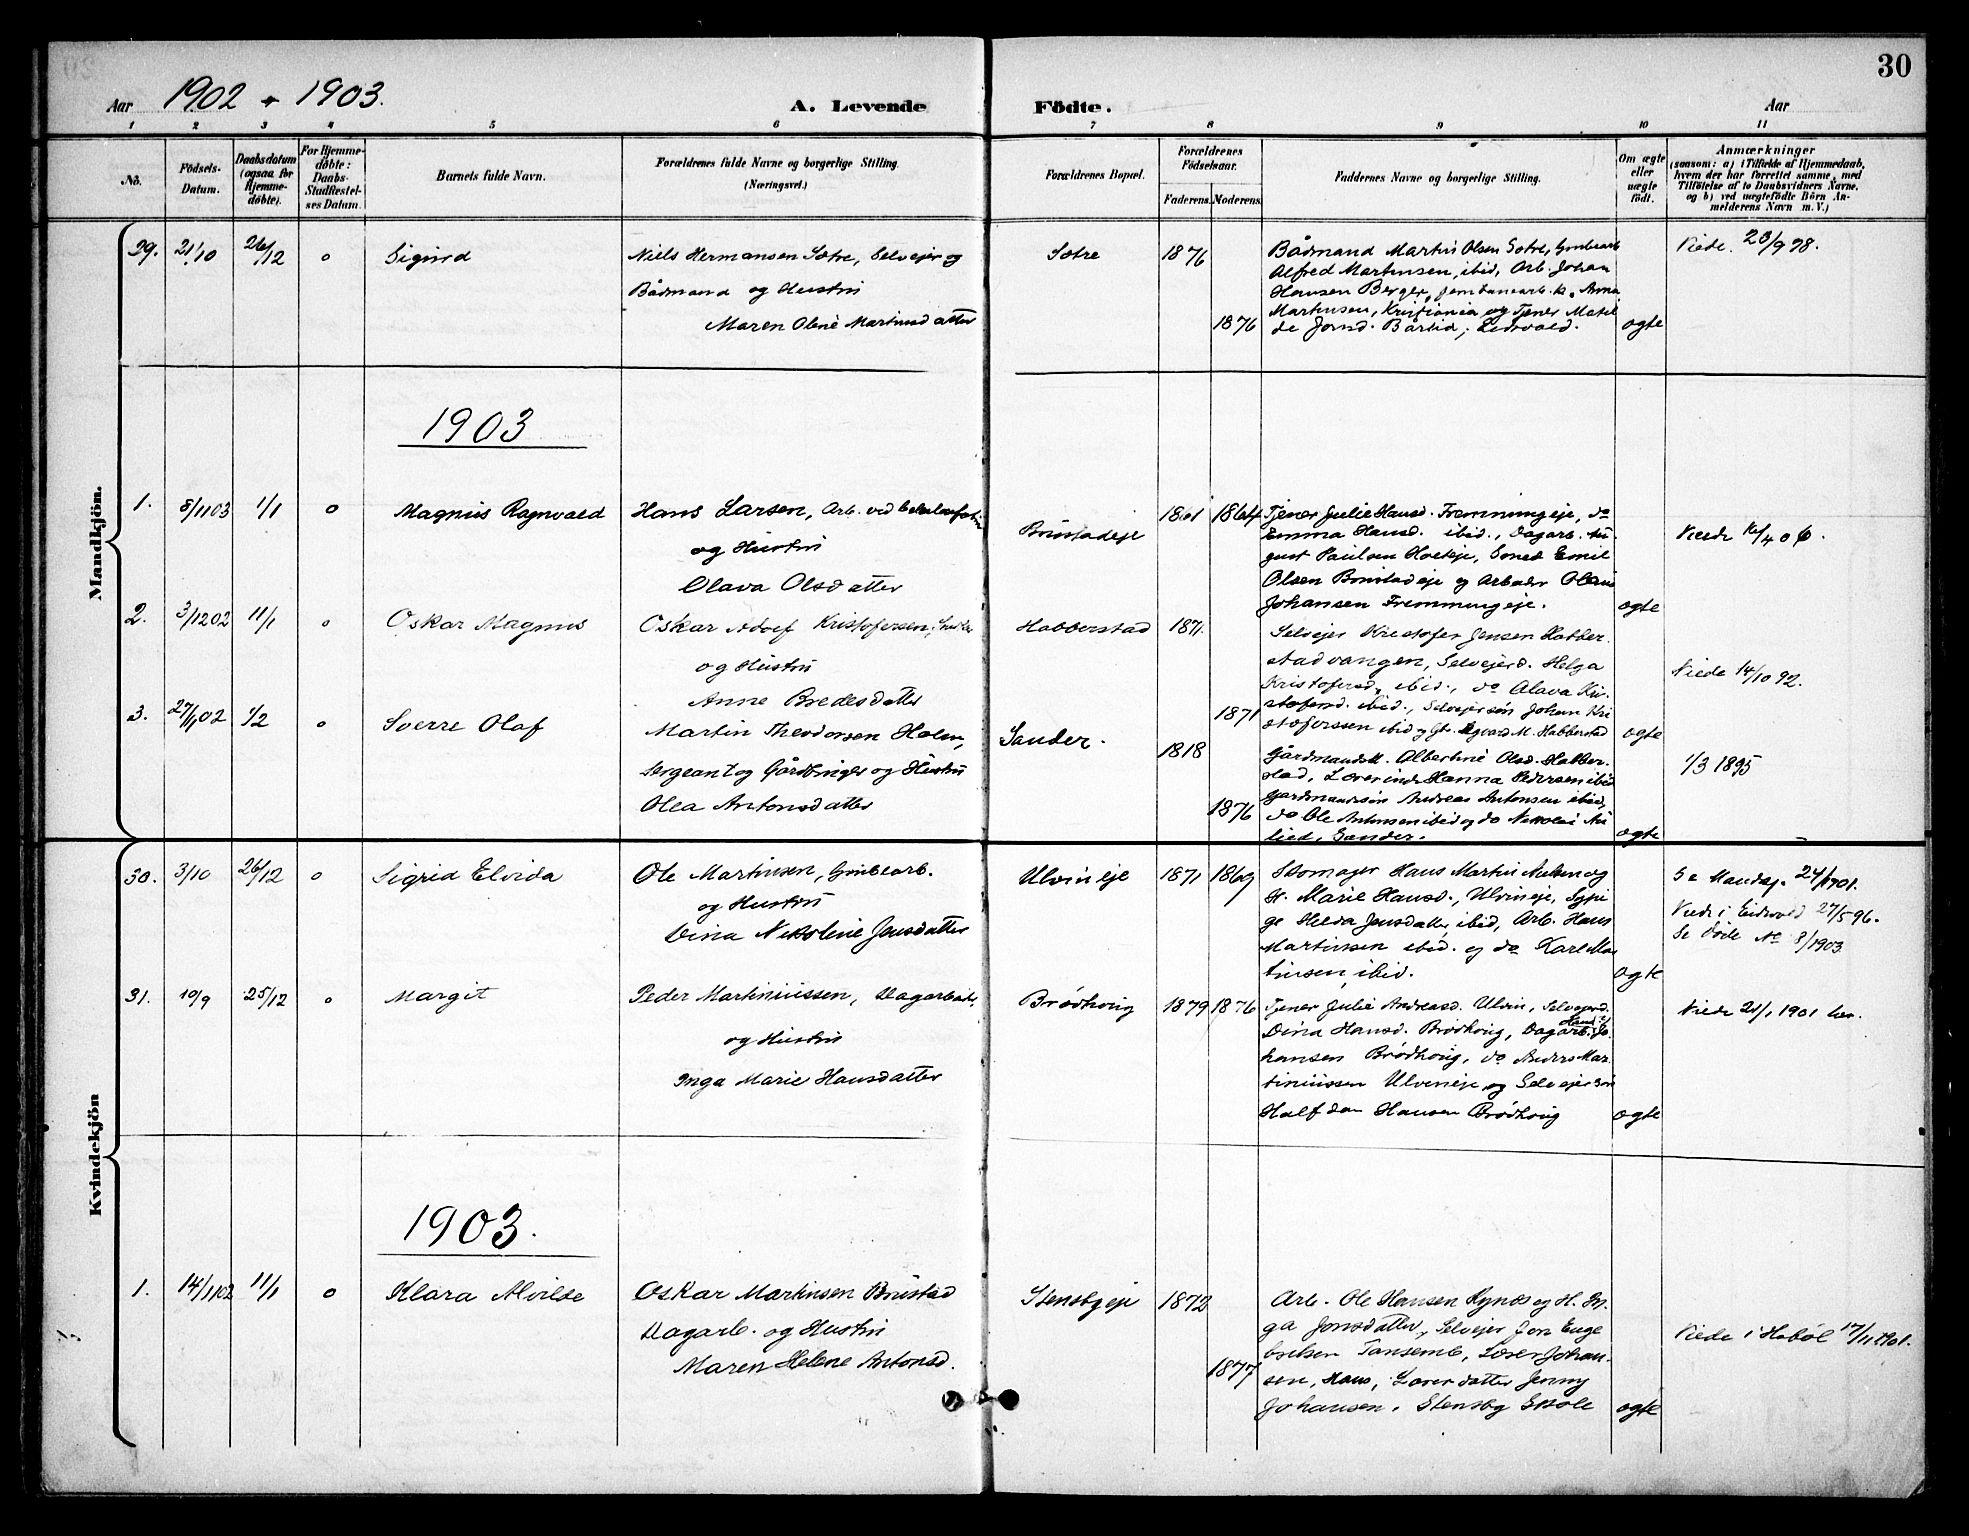 30
Aar 1902 + 1903.
A. Levende Födte.
Aar
1 2 3 4 5 6 7 8 9 10 11
No.
Födsels-Datum.
Daabsdatum (ogsaa for Hjemme-döbte).
For Hjemme-döbte: Daabs-Stadfæstel-ses Datum.
Barnets fulde Navn.
Forældrenes fulde Navne og borgerlige Stilling.
(Næringsvei.)
Forældrenes Bopæl.
Forældrenes Födselsaar.
Faderens. Moderens.
Faddernes Navne og borgerlige Stilling.
Om ægte eller uægte födt.
Anmærkninger
(saasom: a) i Tilfælde af Hjemmedaab,
hvem der har forrettet samme, med
Tilföielse af to Daabsvidners Navne,
og b) ved uægtefödte Börn An-
melderens Navn m. V.)
Mandkjön.
39. 21/10 26/12 o Sigurd
Niels Hermansen Sætre, Selvejer og
Bådmand og Hustru
Maren Oline Martinusdatter
Sætre 1876
1876
Bådmand Martin Olsen Sætre,
Alfred Martinsen, ibid, Arb. Johan
Hansen Berger, Anna
Martinsen, Kristiania og Tjener Matil
de
ægte
Viede. 28/9 98.
1903
1. 8/1103 1/1 o Magnus Ragnvald
Hans Larsen, Arb. ved
og Hustru
Olava Olsdatter
Brustadeje
1864
Tjener Julie Hansd. Fremmingeje, do
Emma Hansd. ibid., Dagarb. Au-
gust Paulsen, Emil
Olsen Brustadeje og Arbeider
Johansen Fremmingeje.
ægte
2. 3/1202 11/1 o Oskar Magnus
Oskar Adolf Kristofersen,
og Hustru
Anne Bredesdatter
Habberstad 1871.
1871
Selvejer Kristofer Jensen Habber
stadvangen, Selvejerd. Helga
Kristofersd, ibid., do Olava Kri-
stofersd. ibid., Selvejersön Johan Kri
stoferssen ibid og M. Habberstad
ægte
Viede 14/10 92.
3. 27/1102 1/2 o Sverre Olaf
Martin Theodorsen Holm,
Sergeant og Gårdbruger og Hustru
Olea Antonsdatter
Sander.
1876
Gårdmandsk. Albertine Olsd. Habber-
stad, Lærerinde Hanna Pedersen ibid
Gardmandssön Andreas Antonsen ibid,
do Ole Antonsen ibid og do Nikolai
Sander.
ægte
1/3 1895
Kvindekjön
30. 3/10 26/12 o Sigrid Elvida
Ole Martinsen, Grubearb.
og Hustru
Dina Nikoline Jensdatter
Ulvineje 1871 1869
Skomager Hans Martin Nielsen og
H. Marie Hansd., Ulvineje,
ge Helda Jensdatter, ibid, Arb. Hans
Martinsen ibid. og do Karl Mar
tinsen, ibid.
ægte
Se Mandkj. 24/1901.
Viede i Eidsvold 27/5 96.
Se Döde No 8/1903
31. 10/9 25/12 o Margit
Peder Martiniussen, Dagarbeid.,
og Hustru
Inga Marie Hansdatter
Brödhoug 1879 1876
Tjener Julie Andreasd. Ulvin, Selvejerd.
Dina Hansd. Brödhoug, Dagarb. Jo-
hansen Brödhoug, do Anders Mar
tiniussen Ulvineje og Selvejersön
Halfdan Hansen Brödhoug
ægte
Viede 21/1 1901 her.
1903.
1. 14/1102 11/1 o Klara Alvilde
Oskar Martinsen Brustad
Dagarb. og Hustru
Maren Helene Antonsd.
Stensbyeje 1872
1877
Arb. Ole Hansen og H. In
ga Jonsdatter, Selvejer Jon Enge
bretsen Tansemb, Lærer Johan-
sen, Haus, Lærerdatter Jenny
Johansen, Stensby Skole
ægte
Viede i Haböl 17/11 1901.